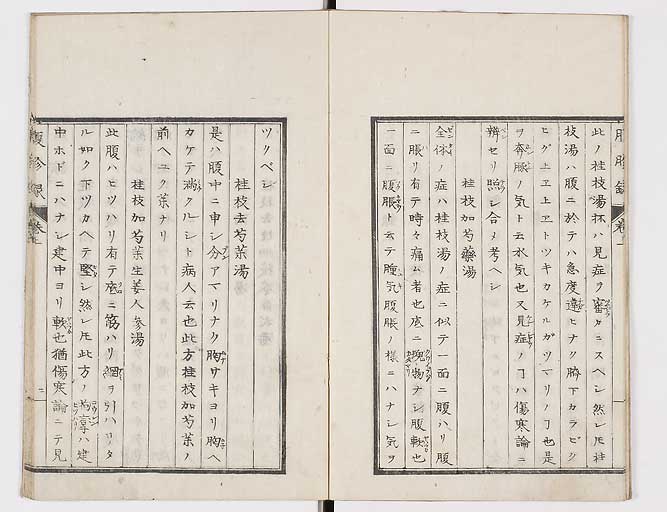 此ノ桂枝湯抔ハ見症ヲ審カニスヘシ然レ𪜈桂
枝湯ハ腹ニ於テハ急度違ヒナク臍下カラビク
ヒグ上ヱ上ヱトツキカケルガツマリノヿ也是
ヲ奔豚ノ気ト云水気也又見症ノヿハ傷寒論ニ
辨セリ照シ合メ考ヘシ
桂枝加芍薬湯
全体ノ症ハ桂枝湯ノ症ニ似テ一面ニ腹ハリ腹
ニ脹リ有テ時々痛ム者也底ニ塊物ナシ腹軟也
一面ニ腹脹ト云テ腫気腹脹ノ様ニハナシ気ヲ
ツクベシ
桂枝去芍薬湯
是ハ腹中ニ申シ分アマリナク胸サキヨリ胸ヘ
カケテ満クルシト病人云也此方桂枝加芍薬ノ
前ヘユク薬ナリ
桂枝加芍薬生姜人参湯
此腹ハヒツハリ有テ底ニ筋ハリ網ヲ引ハリタ
ル如ク下ツカヘテ堅シ然レ𪜈此方ノハ建
中ホドニハナシ建中ヨリ軟也猶傷寒論ニテ見
腹診録 巻上
二